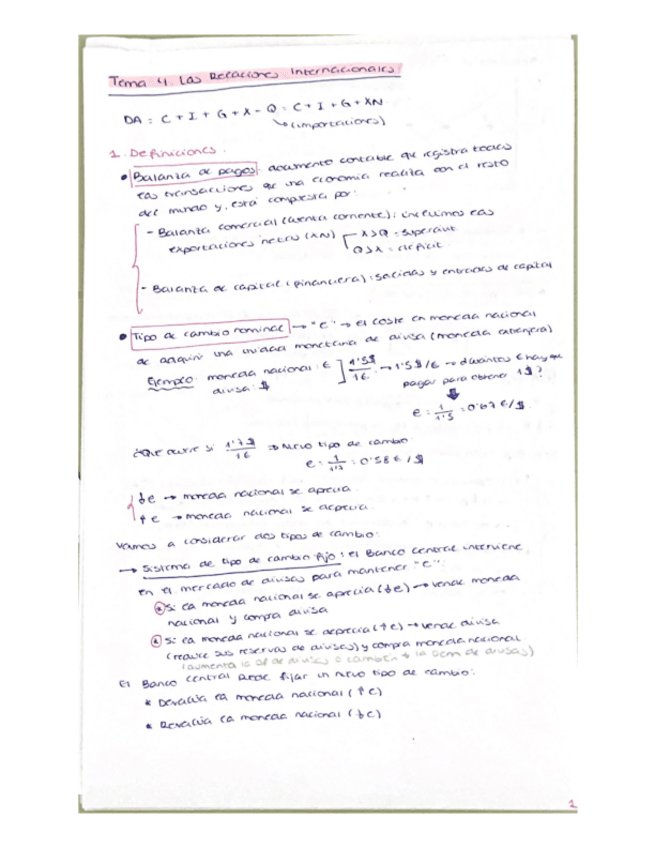 Tema 4 Las Relaciones Internacionales
DA = C + I + G + X - Q = C + I + G + XN
↳ (importaciones)
1. Definiciones.
• Balanza de pagos: documento contable que registra todas
las transacciones que una economía realiza con el resto
del mundo y está compuesta por:
- Balanza comercial (cuenta corriente): incluimos las
exportaciones netas (XN) X>Q = superávit
Q>X = déficit.
- Balanza de capital (financiera): salidas y entradas de capital
• Tipo de cambio nominal → "e" → el coste en moneda nacional
de adquirir una unidad monetaria de divisa (moneda extranjera)
Ejemplo: moneda nacional: € ] 1'5$/1€ → 1'5$/€ → ¿cuántos € hay que
divisa: $ pagar para obtener 1$?
e = 1/1'5 = 0'67€/$.
¿Qué ocurre si 1'7$/1€ ⇒ Nuevo tipo de cambio
e = 1/1'7 = 0'58€/$
↓e → moneda nacional se aprecia.
↑e → moneda nacional se deprecia.
Vamos a considerar dos tipos de cambio:
→ Sistema de tipo de cambio fijo: el Banco Central interviene
en el mercado de divisas para mantener "e":
* Si la moneda nacional se aprecia (↓e) → vende moneda
nacional y compra divisa
* Si la moneda nacional se deprecia (↑e) → vende divisa
(reduce sus reservas de divisas) y compra moneda nacional
(aumenta la of de divisas o cambian la Dem de divisas)
El Banco Central puede fijar un nuevo tipo de cambio:
* Devalúa la moneda nacional (↑e)
* Revalúa la moneda nacional (↓e)
1